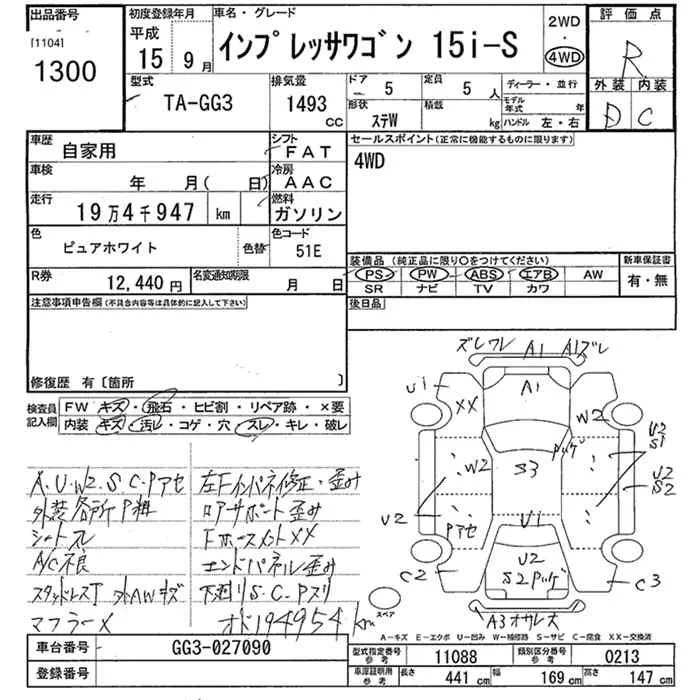 出品番号
[1104]
1300
初度登録年月
平成
15年 9月
車名・グレード
インプレッサワゴン 15i-S
2WD
・
4WD
評価点
R
外装 内装
D C
型式
TA-GG3
排気量
1493 CC
ドア
5
定員
5 人
形状
ステW
積載
kg
ディーラー・並行
モデル年式 年
ハンドル 左・右
車歴
自家用
シフト
FAT
車検
年 月( 日)
冷房
AAC
走行
19万4千947 km
燃料
ガソリン
色
ピュアホワイト
色替
色コード
51E
R券
12,440 円
名変通知期限
月 日
セールスポイント(正常に機能するものに限ります)
4WD
装備品 (純正品に限り○をつけてください)
PS PW ABS エアB AW
SR ナビ TV カワ
新車保証書
有・無
後日品
注意事項申告欄(不具合内容等は具体的に記入して下さい)
修復歴 有〔箇所 〕
検査員記入欄
FW キズ・飛石・ヒビ割・リペア跡・×要
内装 キズ・汚レ・コゲ・穴・スレ・キレ・破レ
A.U.W2.S.C.Pアセ
外装各所P粗
シートスレ
A/C不良
スタッドレスT 社外AWキズ
マフラーX
左Fインパネ修正・歪み
ロアーサポート歪み
FホースメントXX
エンドパネル歪み
下廻りS.C.Pスリ
オド194954km
ズレワレ A1 A1ズレ
U1
XX
A1
W2
W2
S3
Pハゲ
U2
S1
U2
S2
U2
Pアセ
U1
U2
S2Pハゲ
C2
C3
スペア
A3オサレ大
A-キズ E-エクボ U-凹み W-補修跡 S-サビ C-腐食 XX-交換済
車台番号
GG3-027090
登録番号
型式指定番号
参考
11088
類別区分番号
参考
0213
車庫証明用
参考
長さ 441 cm
幅 169 cm
高さ 147 cm